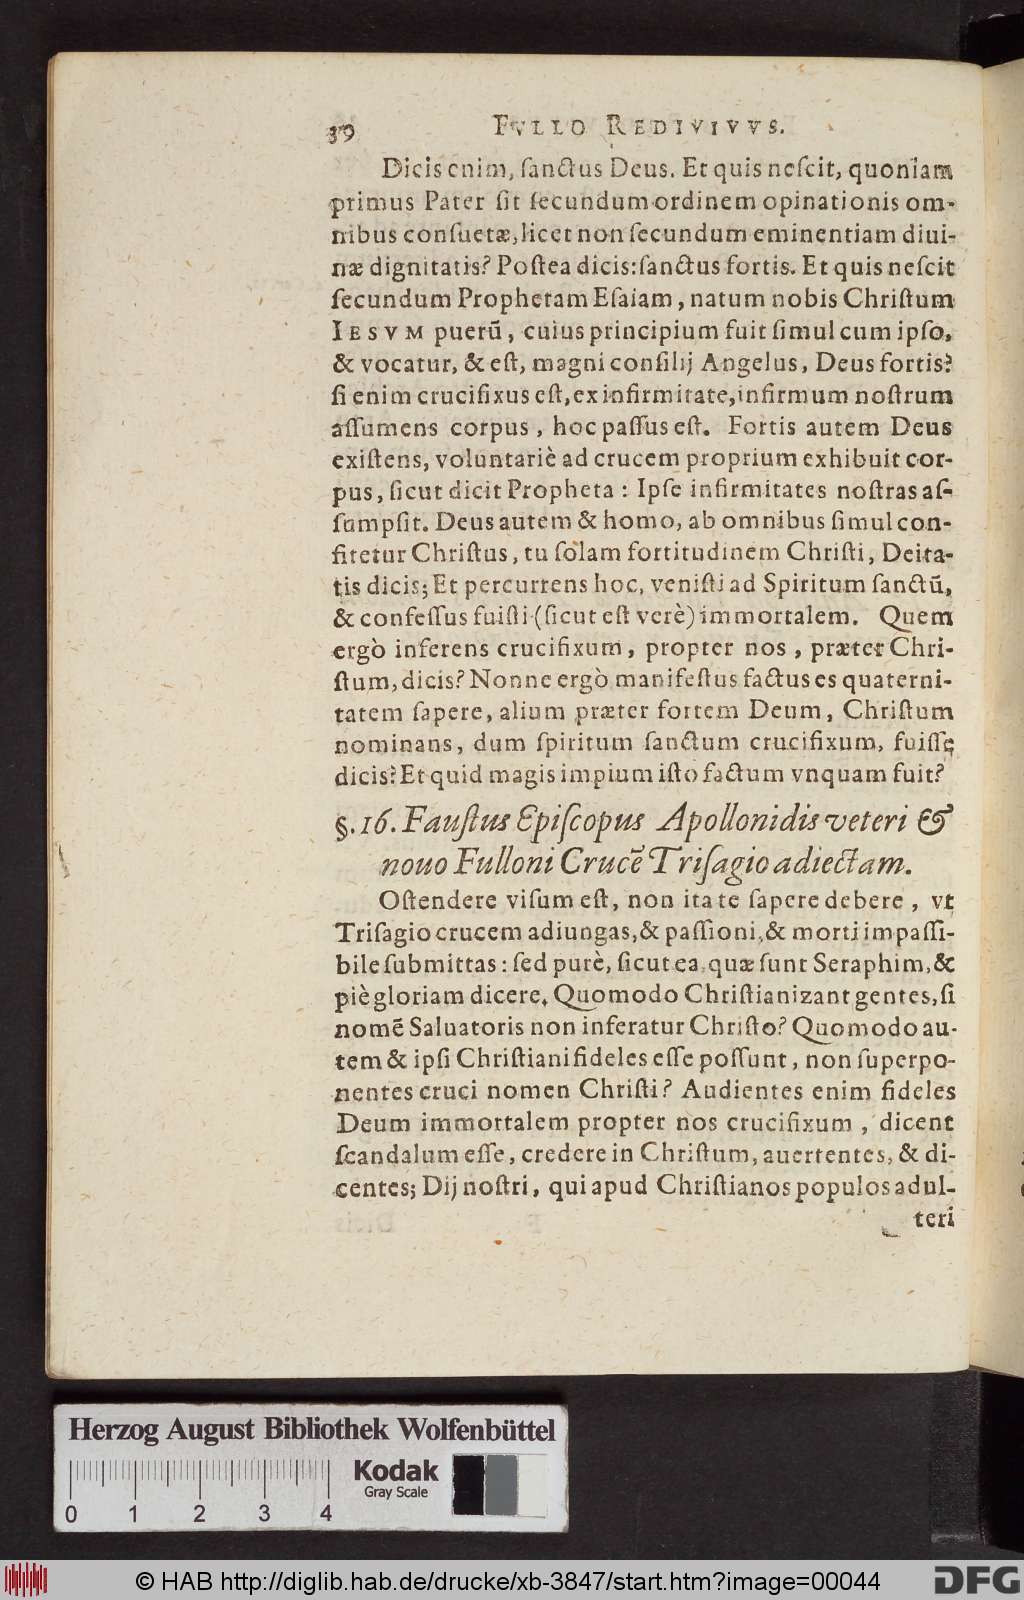 39 FVLLO REDIVIVVS.
Dicis enim, ſanctus Deus. Et quis neſcit, quoniam
primus Pater ſit ſecundum ordinem opinationis om-
nibus conſuetæ, licet non ſecundum eminentiam diui-
næ dignitatis? Poſtea dicis: ſanctus fortis. Et quis neſcit
ſecundum Prophetam Eſaiam, natum nobis Chriſtum
IESVM puerū, cuius principium fuit ſimul cum ipſo,
& vocatur, & eſt, magni conſilij Angelus, Deus fortis?
ſi enim crucifixus eſt, ex infirmitate, infirmum noſtrum
aſſumens corpus, hoc paſſus eſt. Fortis autem Deus
exiſtens, voluntariè ad crucem proprium exhibuit cor-
pus, ſicut dicit Propheta: Ipſe infirmitates noſtras aſ-
ſumpſit. Deus autem & homo, ab omnibus ſimul con-
fitetur Chriſtus, tu ſolam fortitudinem Chriſti, Deita-
tis dicis; Et percurrens hoc, veniſti ad Spiritum ſanctū,
& confeſſus fuiſti (ſicut eſt verè) immortalem. Quem
ergò inferens crucifixum, propter nos, præter Chri-
ſtum, dicis? Nonne ergò manifeſtus factus es quaterni-
tatem ſapere, alium præter fortem Deum, Chriſtum
nominans, dum ſpiritum ſanctum crucifixum, fuiſſe
dicis? Et quid magis impium iſto factum vnquam fuit?
§. 16. Fauſtus Epiſcopus Apollonidis veteri &
nouo Fulloni Crucē Triſagio adiectam.
Oſtendere viſum eſt, non ita te ſapere debere, vt
Triſagio crucem adiungas, & paſſioni, & morti impaſſi-
bile ſubmittas: ſed purè, ſicut ea quæ ſunt Seraphim, &
piè gloriam dicere. Quomodo Chriſtianizant gentes, ſi
nomē Saluatoris non inferatur Chriſto? Quomodo au-
tem & ipſi Chriſtiani fideles eſſe poſſunt, non ſuperpo-
nentes cruci nomen Chriſti? Audientes enim fideles
Deum immortalem propter nos crucifixum, dicent
ſcandalum eſſe, credere in Chriſtum, auertentes, & di-
centes; Dij noſtri, qui apud Chriſtianos populos adul-
teri
Herzog August Bibliothek Wolfenbüttel
Kodak
Gray Scale
0 1 2 3 4
© HAB http://diglib.hab.de/drucke/xb-3847/start.htm?image=00044
DFG